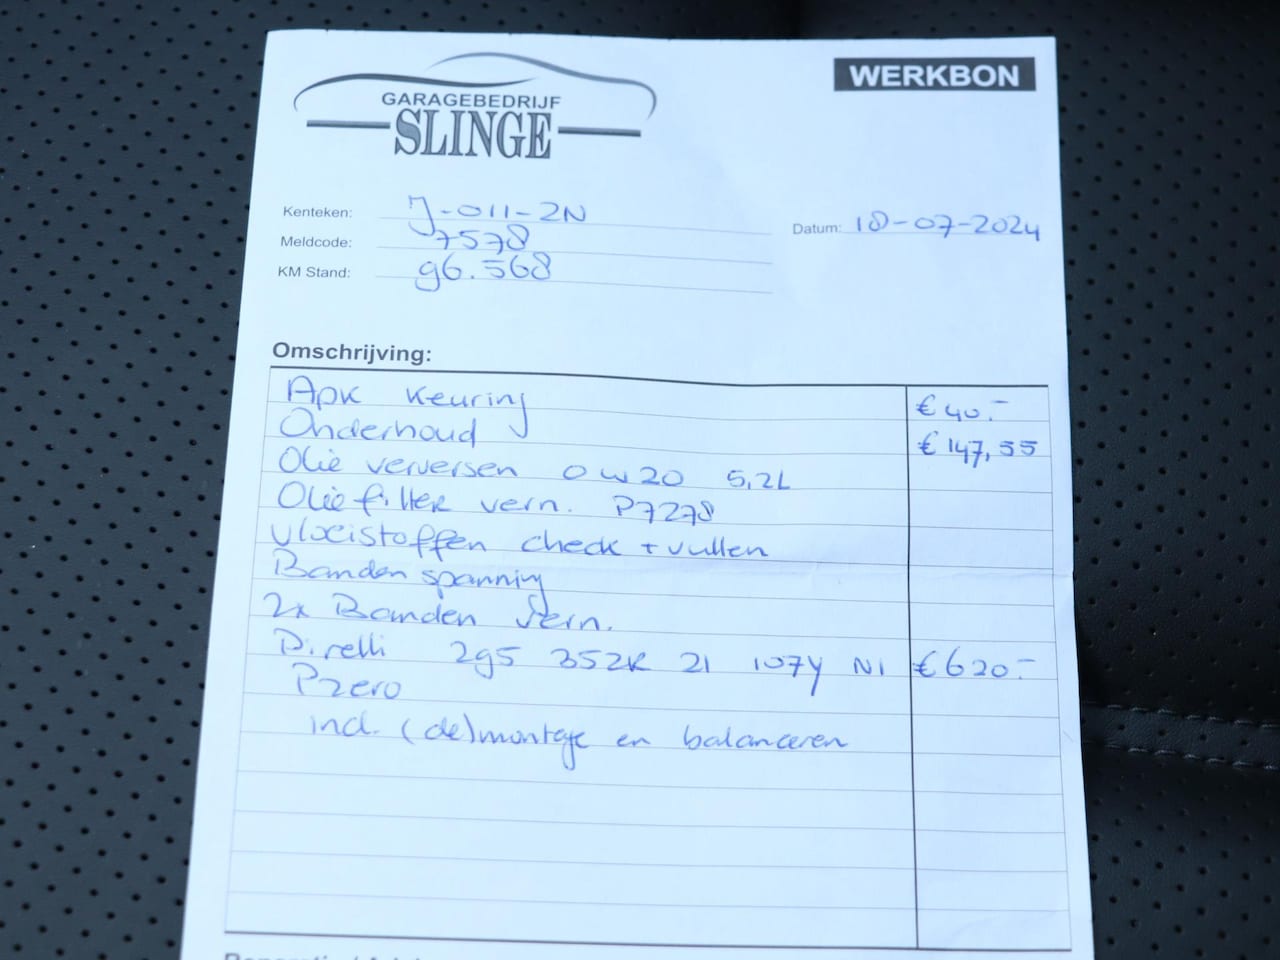 GARAGEBEDRIJF
SLINGE
WERKBON
Kenteken: J-011-2N
Datum: 18-07-2024
Meldcode: 7578
KM Stand: 96.568
Omschrijving:
Apk keuring €40.-
Onderhoud €147,55
Olie verversen 0w20 5,2L
Oliefilter vern. P7278
vloeistoffen check + vullen
Bandenspanning
2x Banden vern.
Pirelli 295 35ZR 21 107Y N1 €620.-
Pzero
incl. (de)montage en balanceren